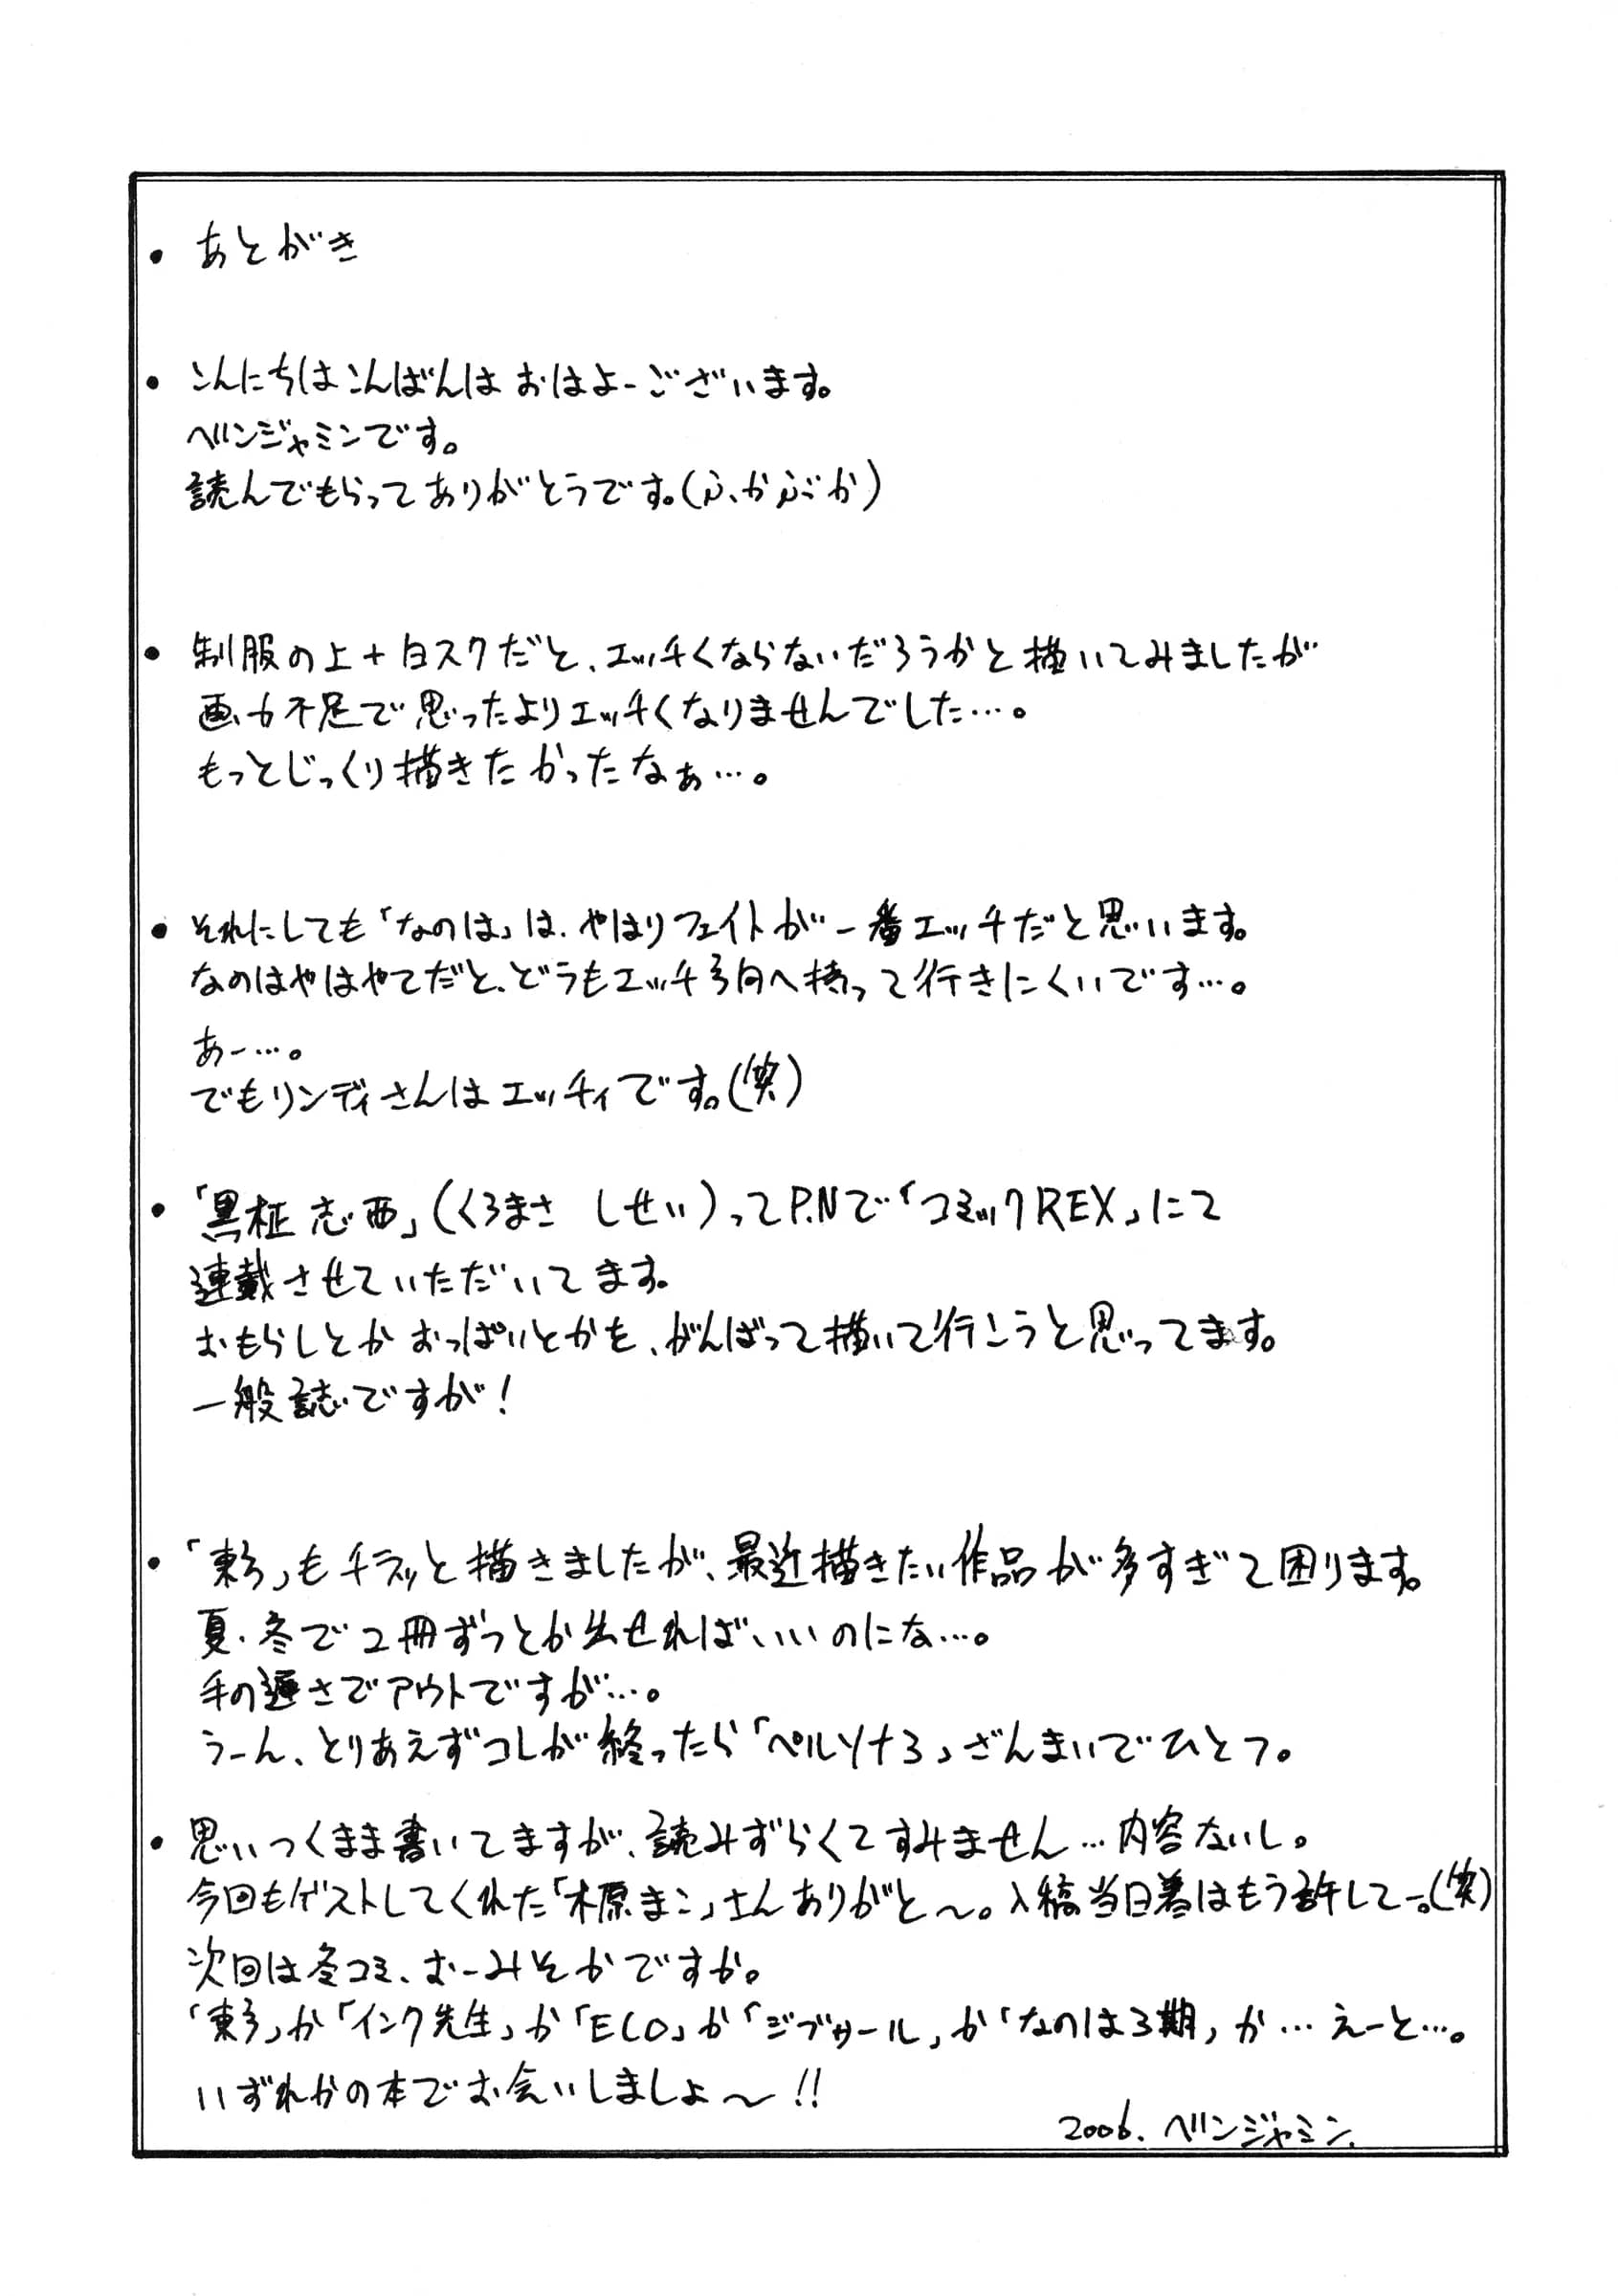 ・あとがき
・こんにちはこんばんは おはよーございます。
べﾙンジャミンです。
読んでもらってありがとうです。(ふかぶか)
・制服の上+白スクだと、エッチくならないだろうかと描いてみましたが
画力不足で思ったよりエッチくなりませんでした…。
もっとじっくり描きたかったなぁ…。
・それにしても「なのは」は、やはりフェイトが一番エッチだと思います。
なのはやはやてだと、どうもエッチ方向へ持って行きにくいです…。
あー…。
でもリンディさんはエッチィです。(笑)
・「黒柾志西」(くろまさ しせい)ってP.Nで「コミックREX」にて
連載させていただいてます。
おもらしとかおっぱいとかを、がんばって描いて行こうと思ってます。
一般誌ですが!
・「東方」もチラッと描きましたが、最近描きたい作品が多すぎて困ります。
夏・冬で2冊ずつとか出せればいいのにな…。
手の遅さでアウトですが…。
うーん、とりあえずコレが終ったら「ペルソナ3」ざんまいでひとつ。
・思いつくまま書いてますが、読みずらくてすみません…内容ないし。
今回もゲストしてくれた「木原まこ」さんありがと〜。入稿当日着はもう許してー。(笑)
次回は冬コミ、おーみそかですか。
「東方」か「インク先生」か「ECO」か「ジブリール」か「なのは3期」か…えーと…。
いずれかの本でお会いしましょ〜!!
2006. べﾙンジャミン.